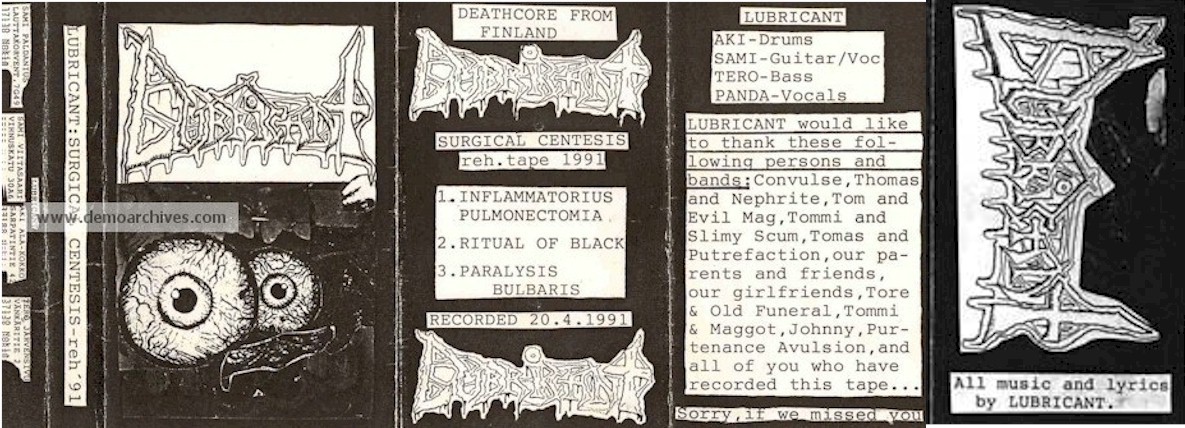 SAMI PALDANIUS
LAUTTAKORVENT.7G49
37130 Nokia
SAMI VIITASAARI
VIHNUSKATU 30A6
AKI ALA-KOKKO
TERO JÄRVENSIVU
37130 Nokia
LUBRICANT::SURGICAL CENTESIS-reh'91
LUBRICANT
www.demoarchives.com
DEATHCORE FROM
FINLAND
LUBRICANT
SURGICAL CENTESIS
reh.tape 1991
1.INFLAMMATORIUS
PULMONECTOMIA
2.RITUAL OF BLACK
3.PARALYSIS
BULBARIS
RECORDED 20.4.1991
LUBRICANT
LUBRICANT
AKI-Drums
SAMI-Guitar/Voc
TERO-Bass
PANDA-Vocals
LUBRICANT would like
to thank these fol-
lowing persons and
bands:Convulse,Thomas
and Nephrite,Tom and
Evil Mag,Tommi and
Slimy Scum,Tomas and
Putrefaction,our pa-
rents and friends,
our girlfriends,Tore
& Old Funeral,Tommi
& Maggot,Johnny,Pur-
tenance Avulsion,and
all of you who have
recorded this tape...
Sorry,if we missed you
LUBRICANT
All music and lyrics
by LUBRICANT.